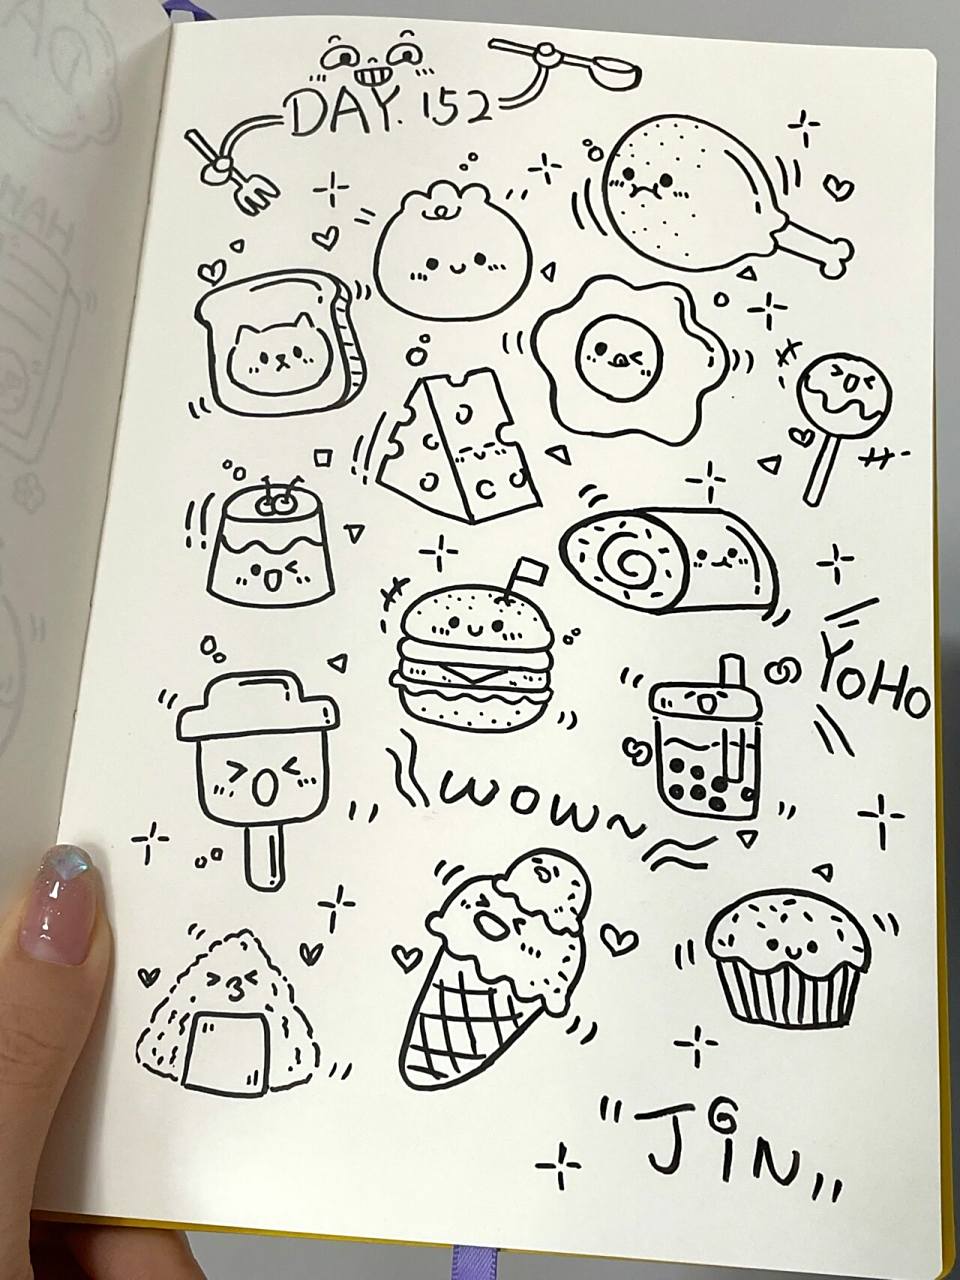 DAY. 152
YOHO
WOW~
"JiN"